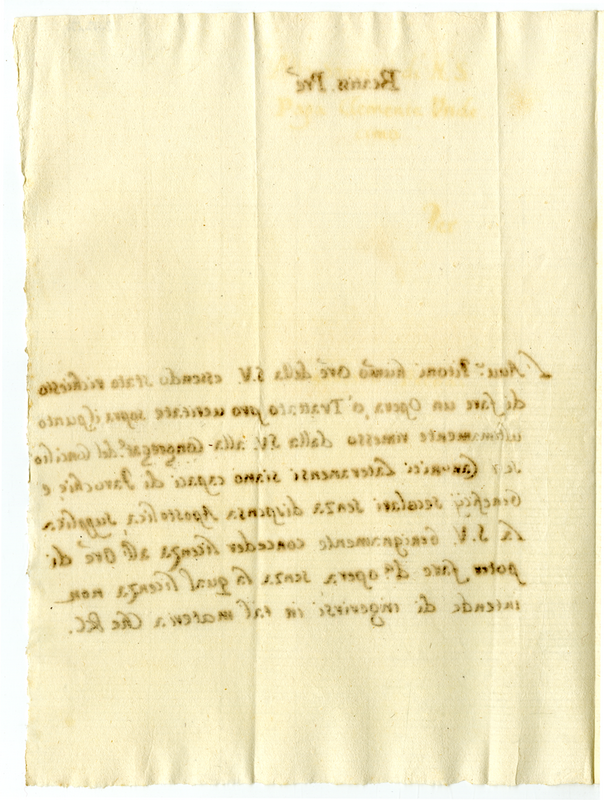 Beatis. Pr̃e
Papa Clemente Unde
cimo
Per
L'Auu.º Pitoni humõ Orẽ della S.V. essendo stato richiesto
di fare un Opera, ò Trattato pro ueritate sopra il punto
ultimamente rimesso dalla S.V. alla Congregat.e del Concilio
se i Canonici Lateranensi siano capaci di Parochie e
Beneficij secolari senza dispensa Apostolica, supplica
la S.V. benignamente conceder licenza all' Orẽ di
poter fare d.ª opera senza la qual licenza non
intende di ingerirsi in tal materia Che &c.